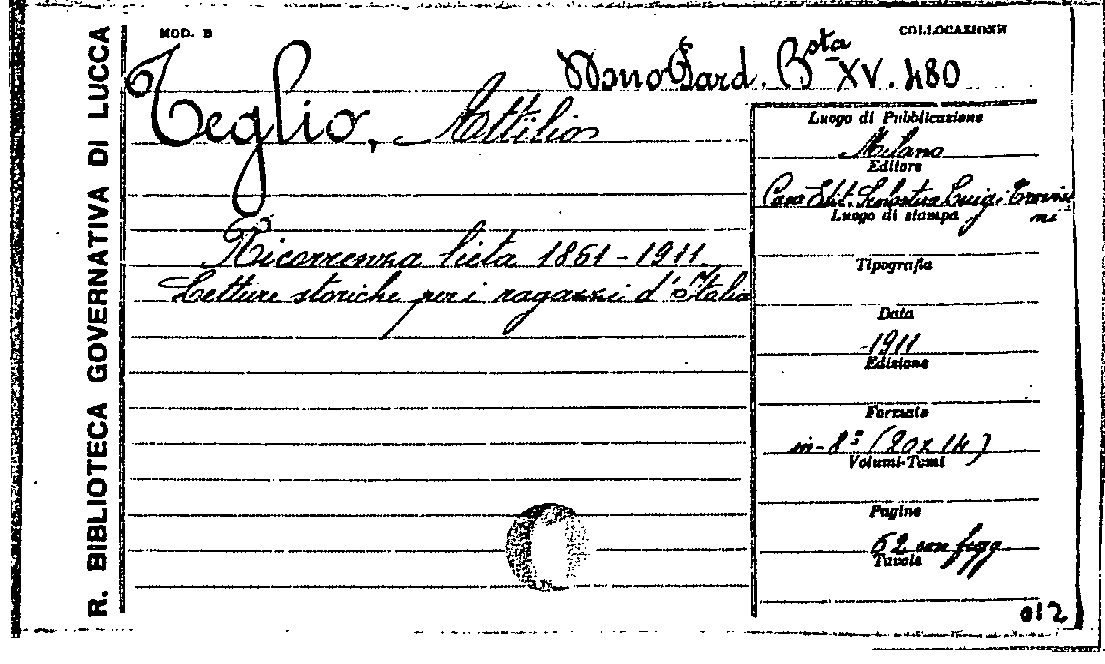 R. BIBLIOTECA GOVERNATIVA DI LUCCA
MOD. B
COLLOCAZIONE
Bsta XV. 480
Teglio, Attilio
Ricorrenza lieta 1861-1911.
Letture storiche per i ragazzi d'Italia
Luogo di Pubblicazione
Milano
Editore
Casa Edit. Luigi Trevisi
ni
Luogo di stampa
Tipografia
Data
1911
Edizione
Formato
in-8° (20x14)
Volumi-Tomi
Pagine
62 con figg.
Tavole
012